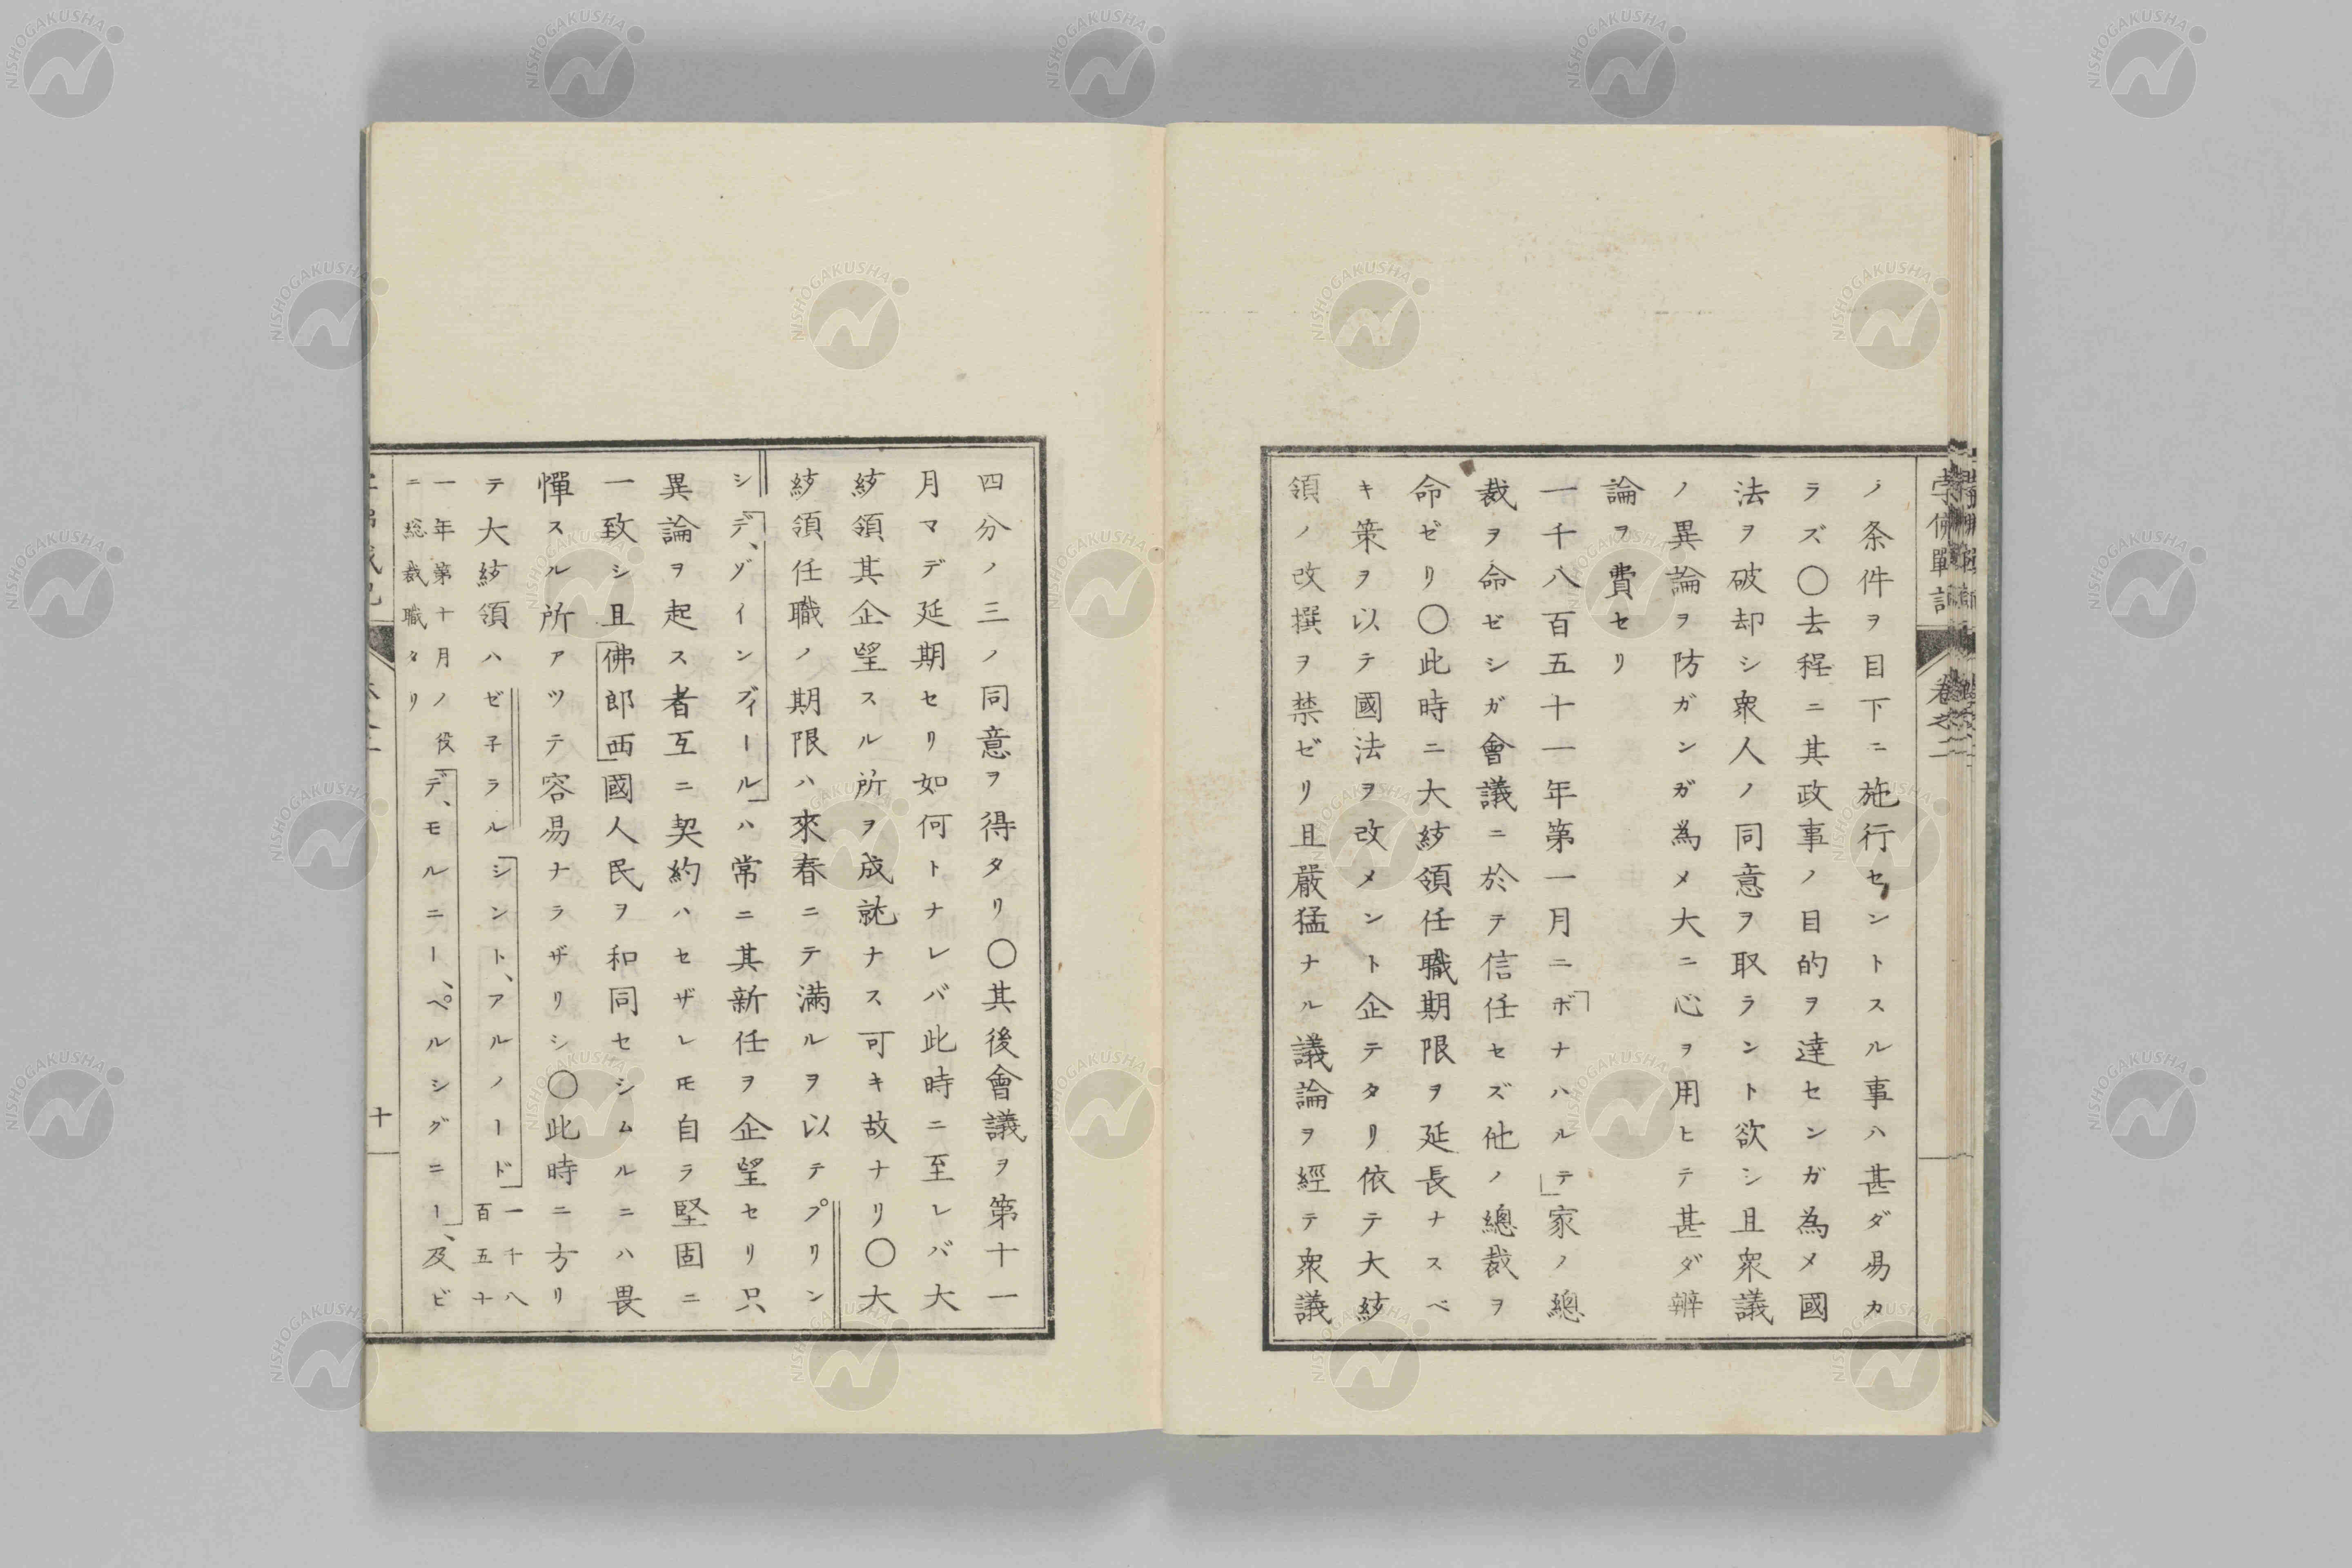 孛佛戰記
卷之二
ノ条件ヲ目下ニ施行セントスル事ハ甚ダ易カ
ラズ〇去程ニ其政事ノ目的ヲ達センガ為メ國
法ヲ破却シ衆人ノ同意ヲ取ラント欲シ且衆議
ノ異論ヲ防ガンガ為メ大ニ心ヲ用ヒテ甚ダ辨
論ヲ費セリ
一千八百五十一年第一月ニ「ボナハルテ」家ノ總
裁ヲ命ゼシガ會議ニ於テ信任セズ他ノ總裁ヲ
命ゼリ〇此時ニ大紡領任職期限ヲ延長ナスベ
キ策ヲ以テ國法ヲ改メント企テタリ依テ大紡
領ノ改撰ヲ禁ゼリ且嚴猛ナル議論ヲ經テ衆議
四分ノ三ノ同意ヲ得タリ〇其後會議ヲ第十一
月マデ延期セリ如何トナレバ此時ニ至レバ大
紡領其企望スル所ヲ成就ナス可キ故ナリ〇大
紡領任職ノ期限ハ來春ニテ滿ルヲ以テプリン
シ「デ、ゾインヴィール」ハ常ニ其新任ヲ企望セリ只
異論ヲ起ス者互ニ契約ハセザレ𪜈自ラ堅固ニ
一致シ且「佛郎西」國人民ヲ和同セシムルニハ畏
憚スル所アツテ容易ナラザリシ〇此時ニ方リ
テ大紡領ハゼ子ラル「シント、アルノード」一千八
百五十
一年第十月ノ役「デ、モルニー、ペルシグニー」、及ビ
ニ総裁職タリ
十
NISHOGAKUSHA